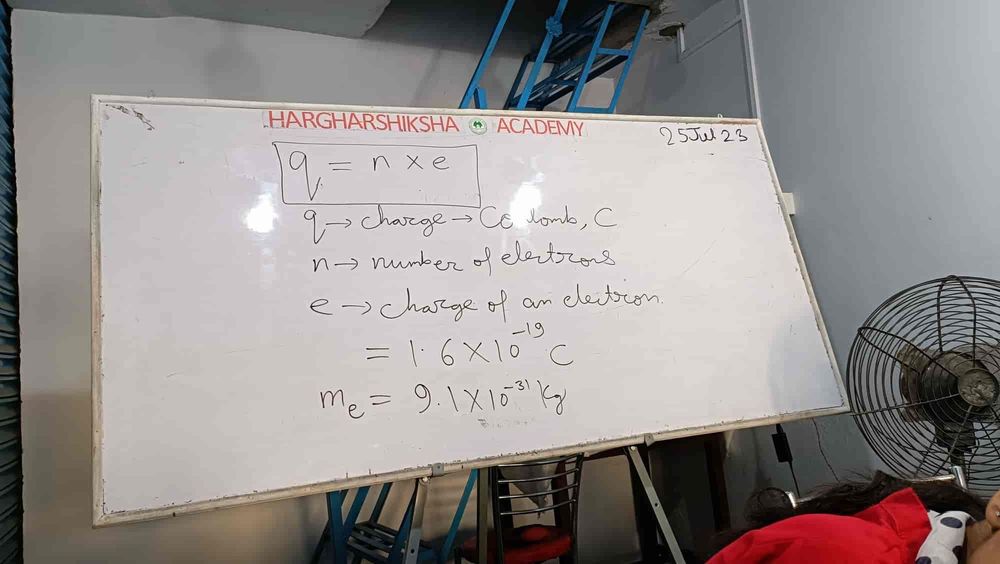 HARGHARSHIKSHA ACADEMY
25 Jul 23
q = n × e
q → charge → Coulomb, C
n → number of electrons
e → charge of an electron.
= 1.6 × 10⁻¹⁹ C
mₑ = 9.1 × 10⁻³¹ Kg